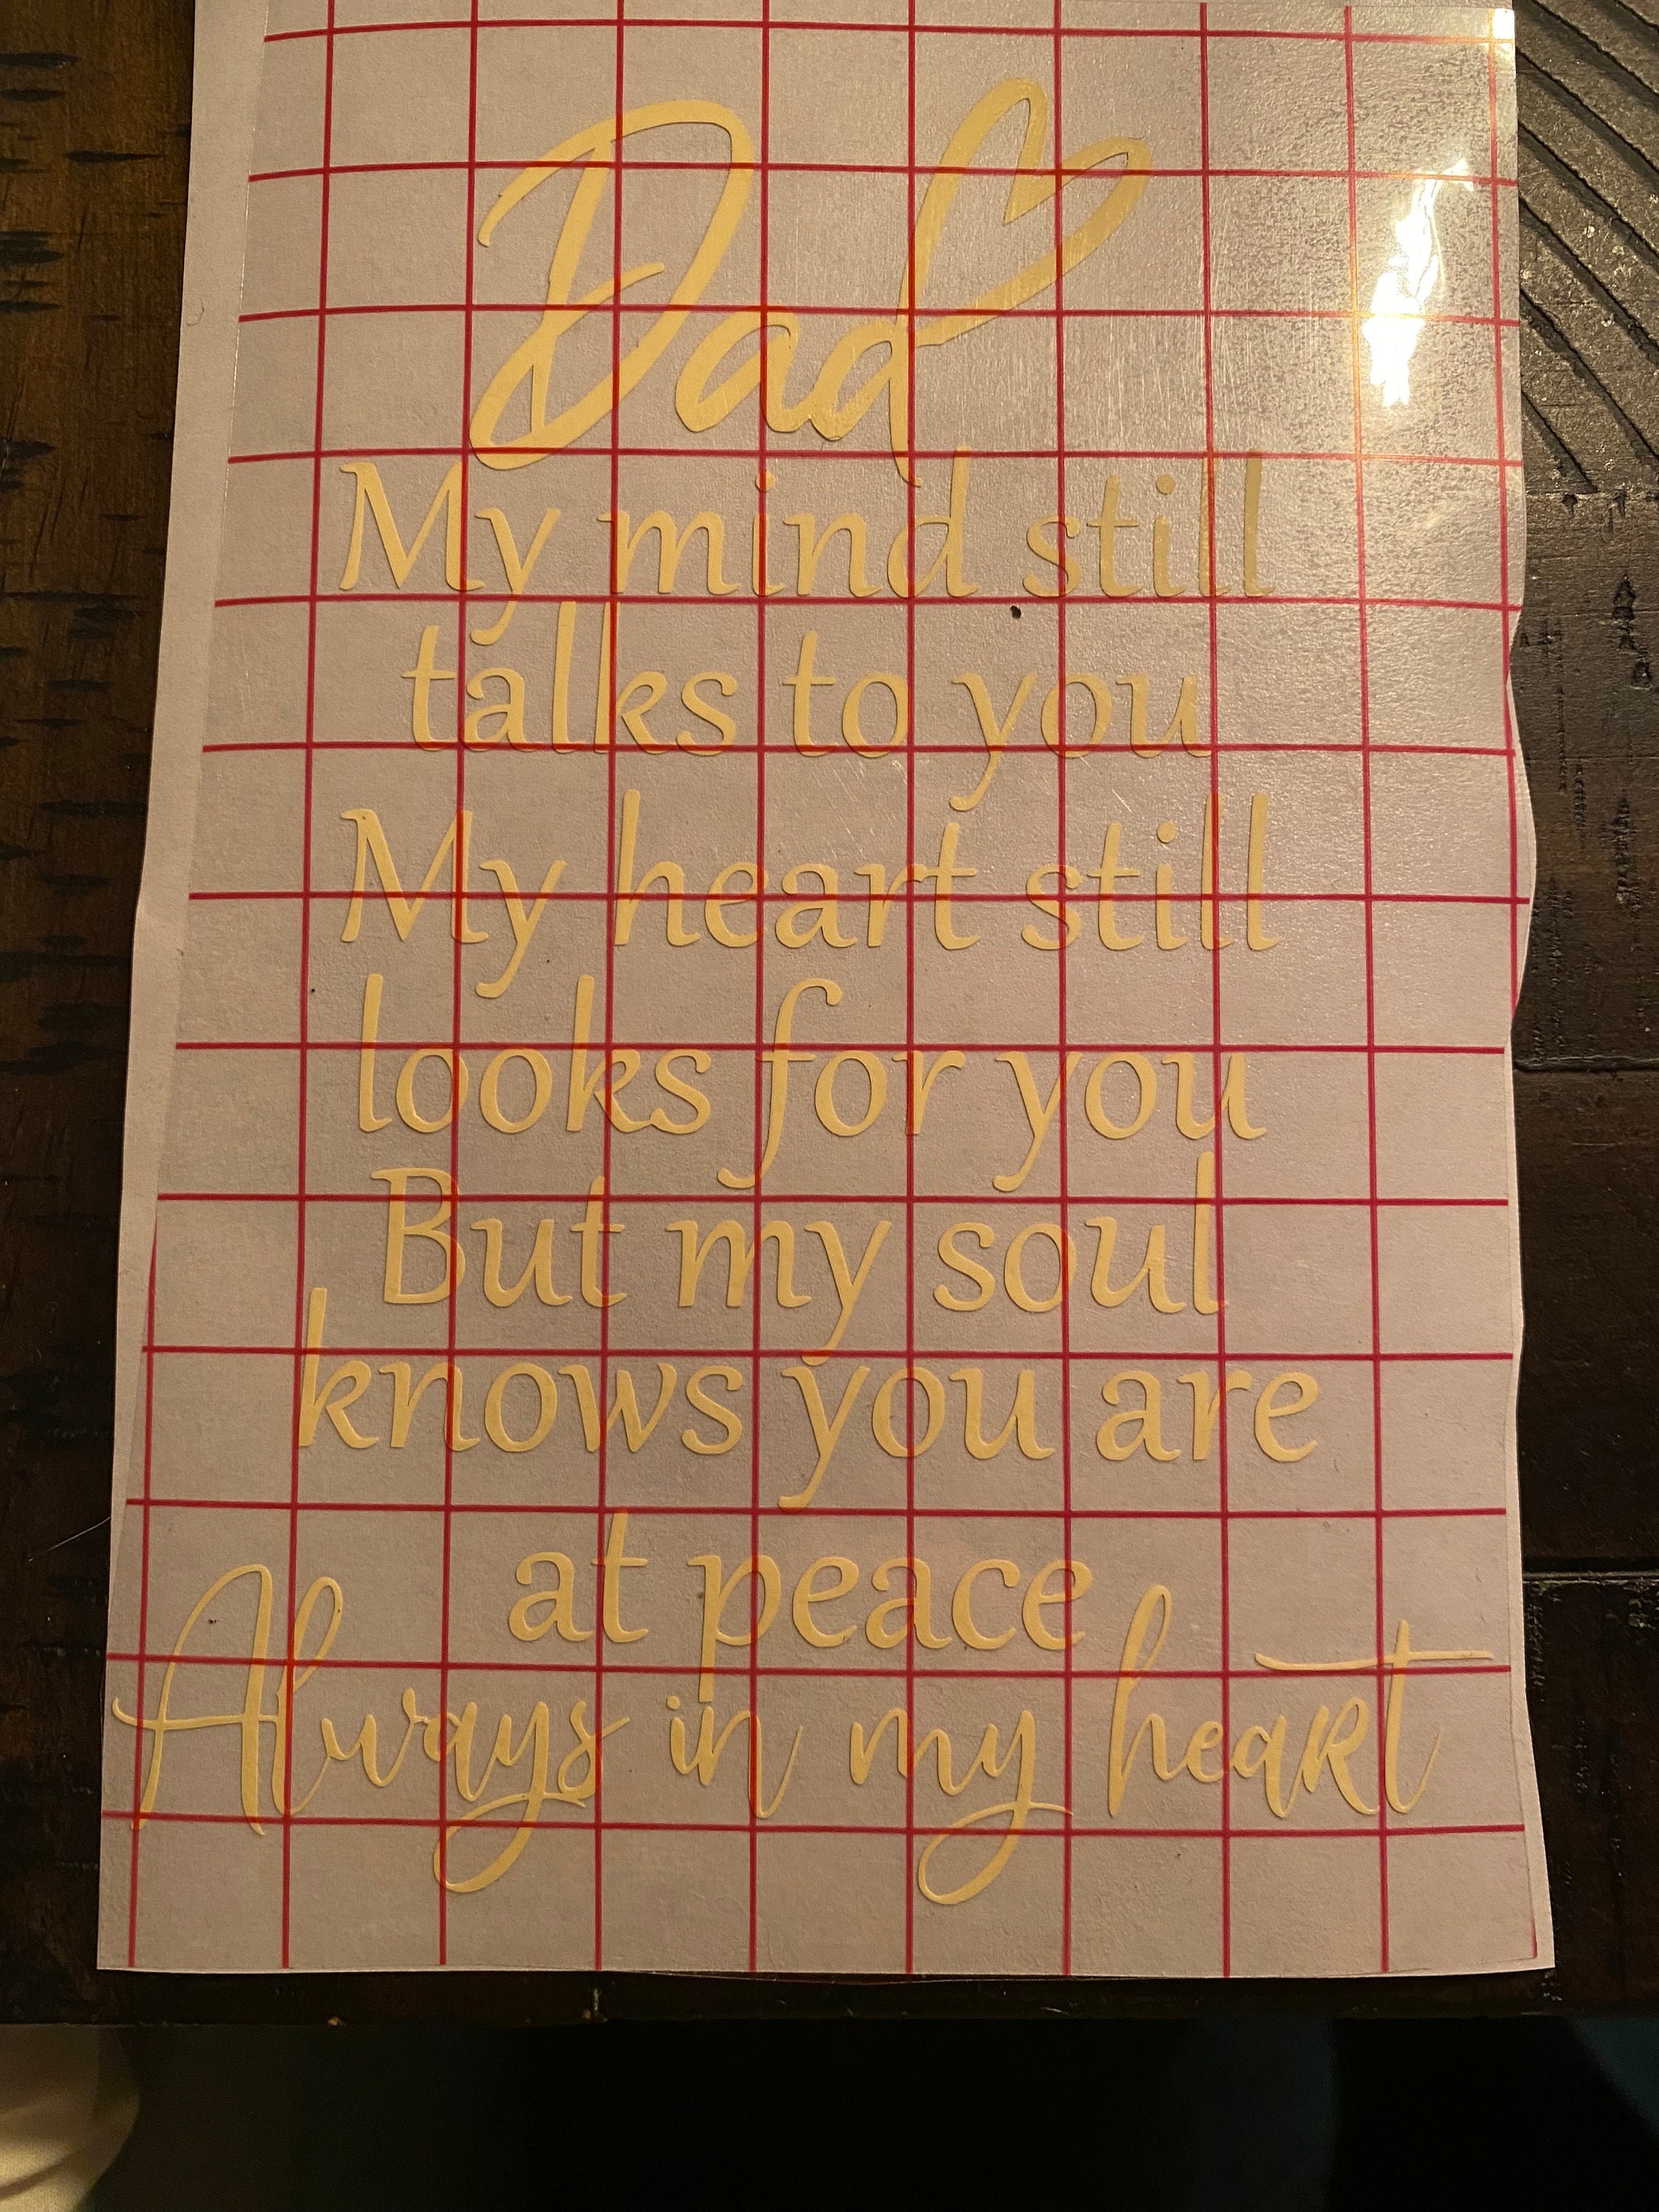 Dad
My mind still
talks to you
My heart still
looks for you
But my soul
knows you are
at peace
Always in my heart